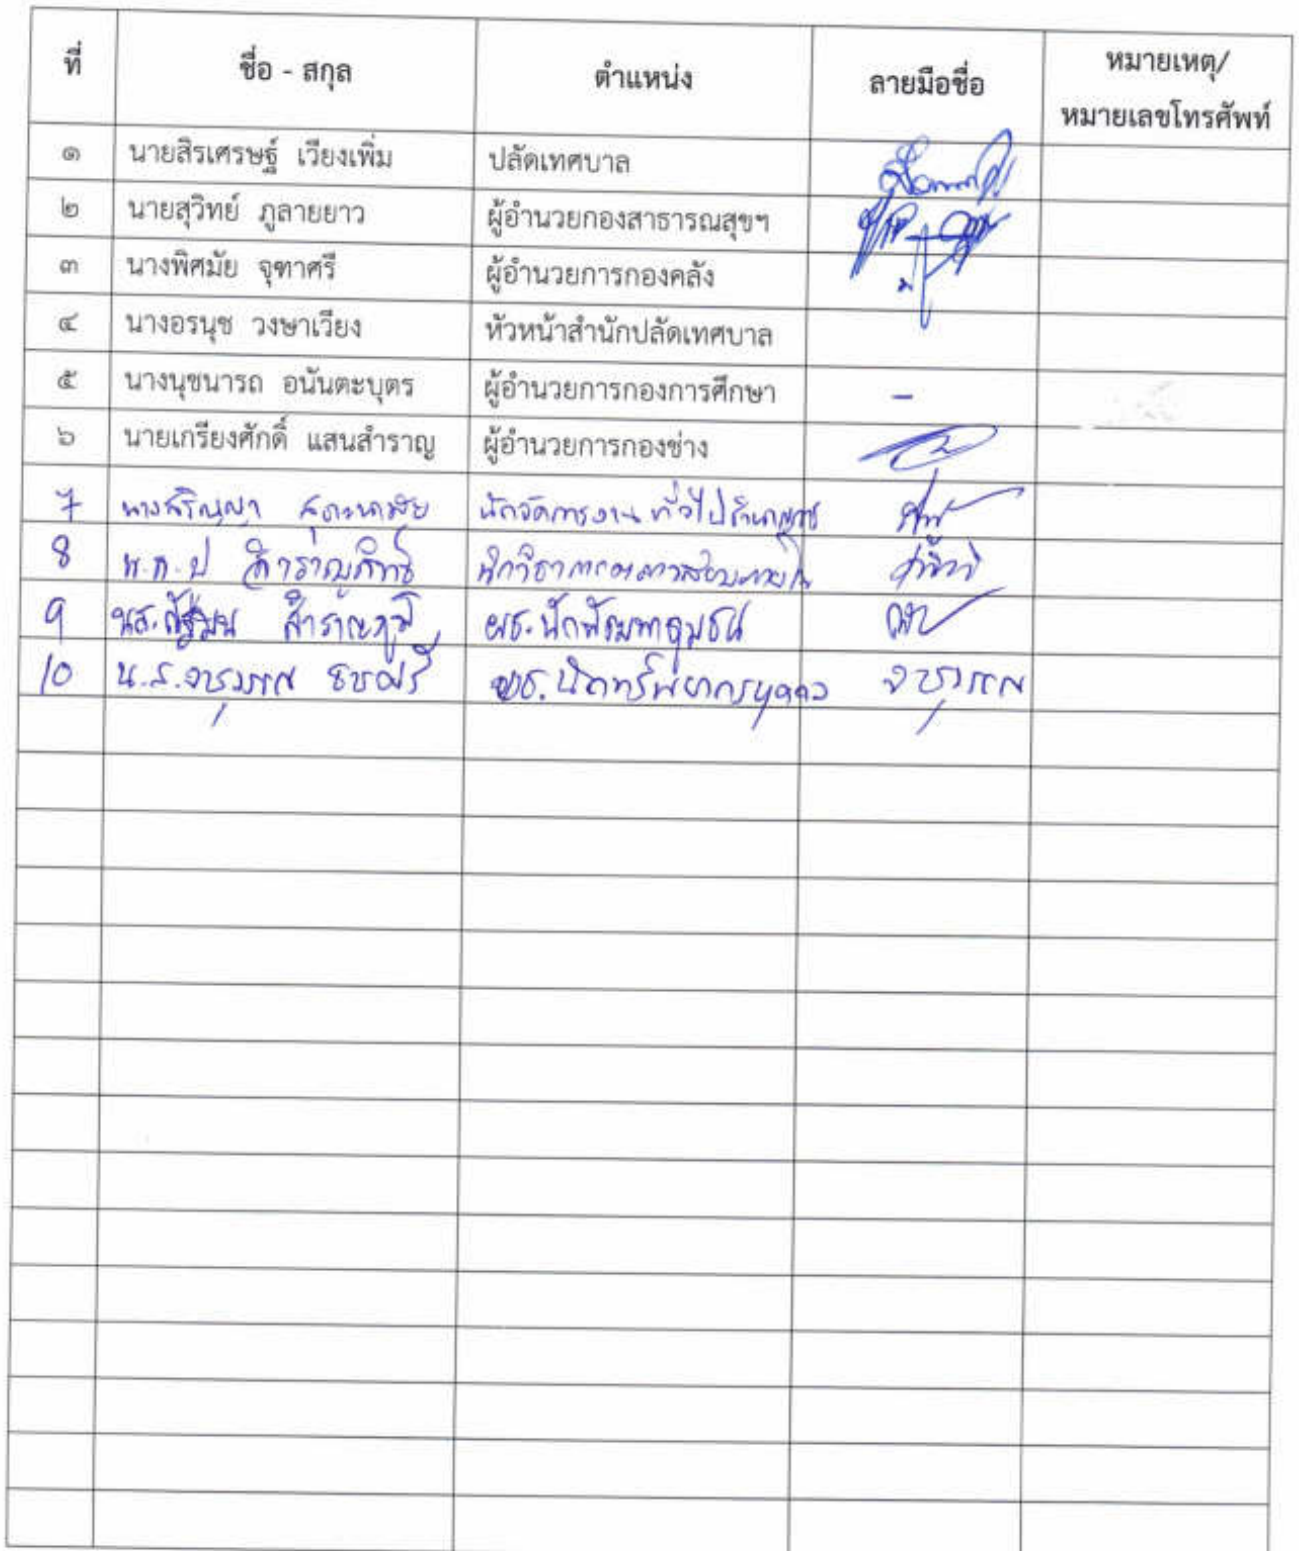 ที่ ชื่อ - สกุล ตำแหน่ง ลายมือชื่อ หมายเหตุ/
หมายเลขโทรศัพท์
๑ นายสิรเศรษฐ์ เวียงเพิ่ม ปลัดเทศบาล
๒ นายสุวิทย์ ภูลายยาว ผู้อำนวยกองสาธารณสุขฯ
๓ นางพิศมัย จุฑาศรี ผู้อำนวยการกองคลัง
๔ นางอรนุช วงษาเวียง หัวหน้าสำนักปลัดเทศบาล
๕ นางนุชนารถ อนันตะบุตร ผู้อำนวยการกองการศึกษา -
๖ นายเกรียงศักดิ์ แสนสำราญ ผู้อำนวยการกองช่าง
7 นักจัดการงานทั่วไปชำนาญการ
8
9 ผช.นักพัฒนาชุมชน
10 น.ส.จารุวรรณ ผช.นักทรัพยากรบุคคล จารุวรรณ